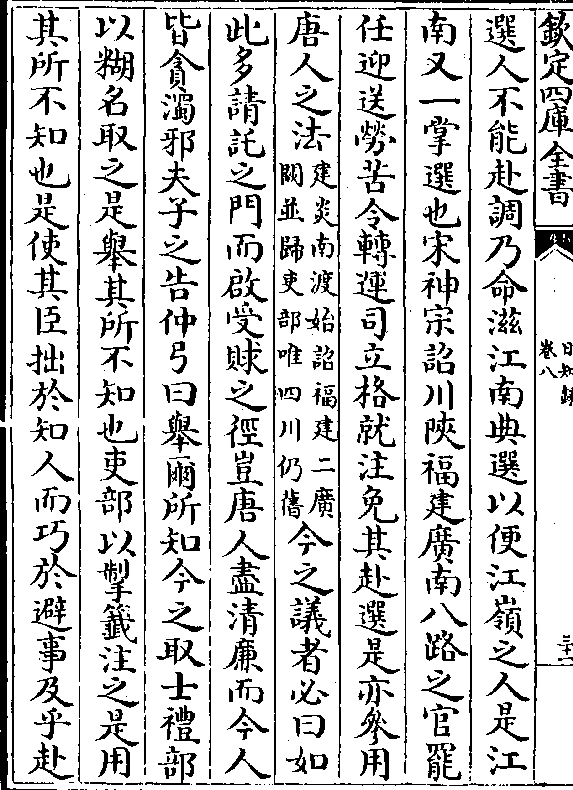 欽定四庫全書
日知錄
卷八
三十二
選人不能赴調乃命滋江南典選以便江嶺之人是江
南又一掌選也宋神宗詔川陜福建廣南八路之官罷
任迎送勞苦令轉運司立格就注免其赴選是亦參用
唐人之法建炎南渡始詔福建二廣
闕並歸吏部唯四川仍舊今之議者必曰如
此多請託之門而啟受賕之徑豈唐人盡清廉而今人
皆貪濁邪夫子之告仲弓曰舉爾所知今之取士禮部
以糊名取之是舉其所不知也吏部以掣籤注之是用
其所不知也是使其臣拙於知人而巧於避事及乎赴